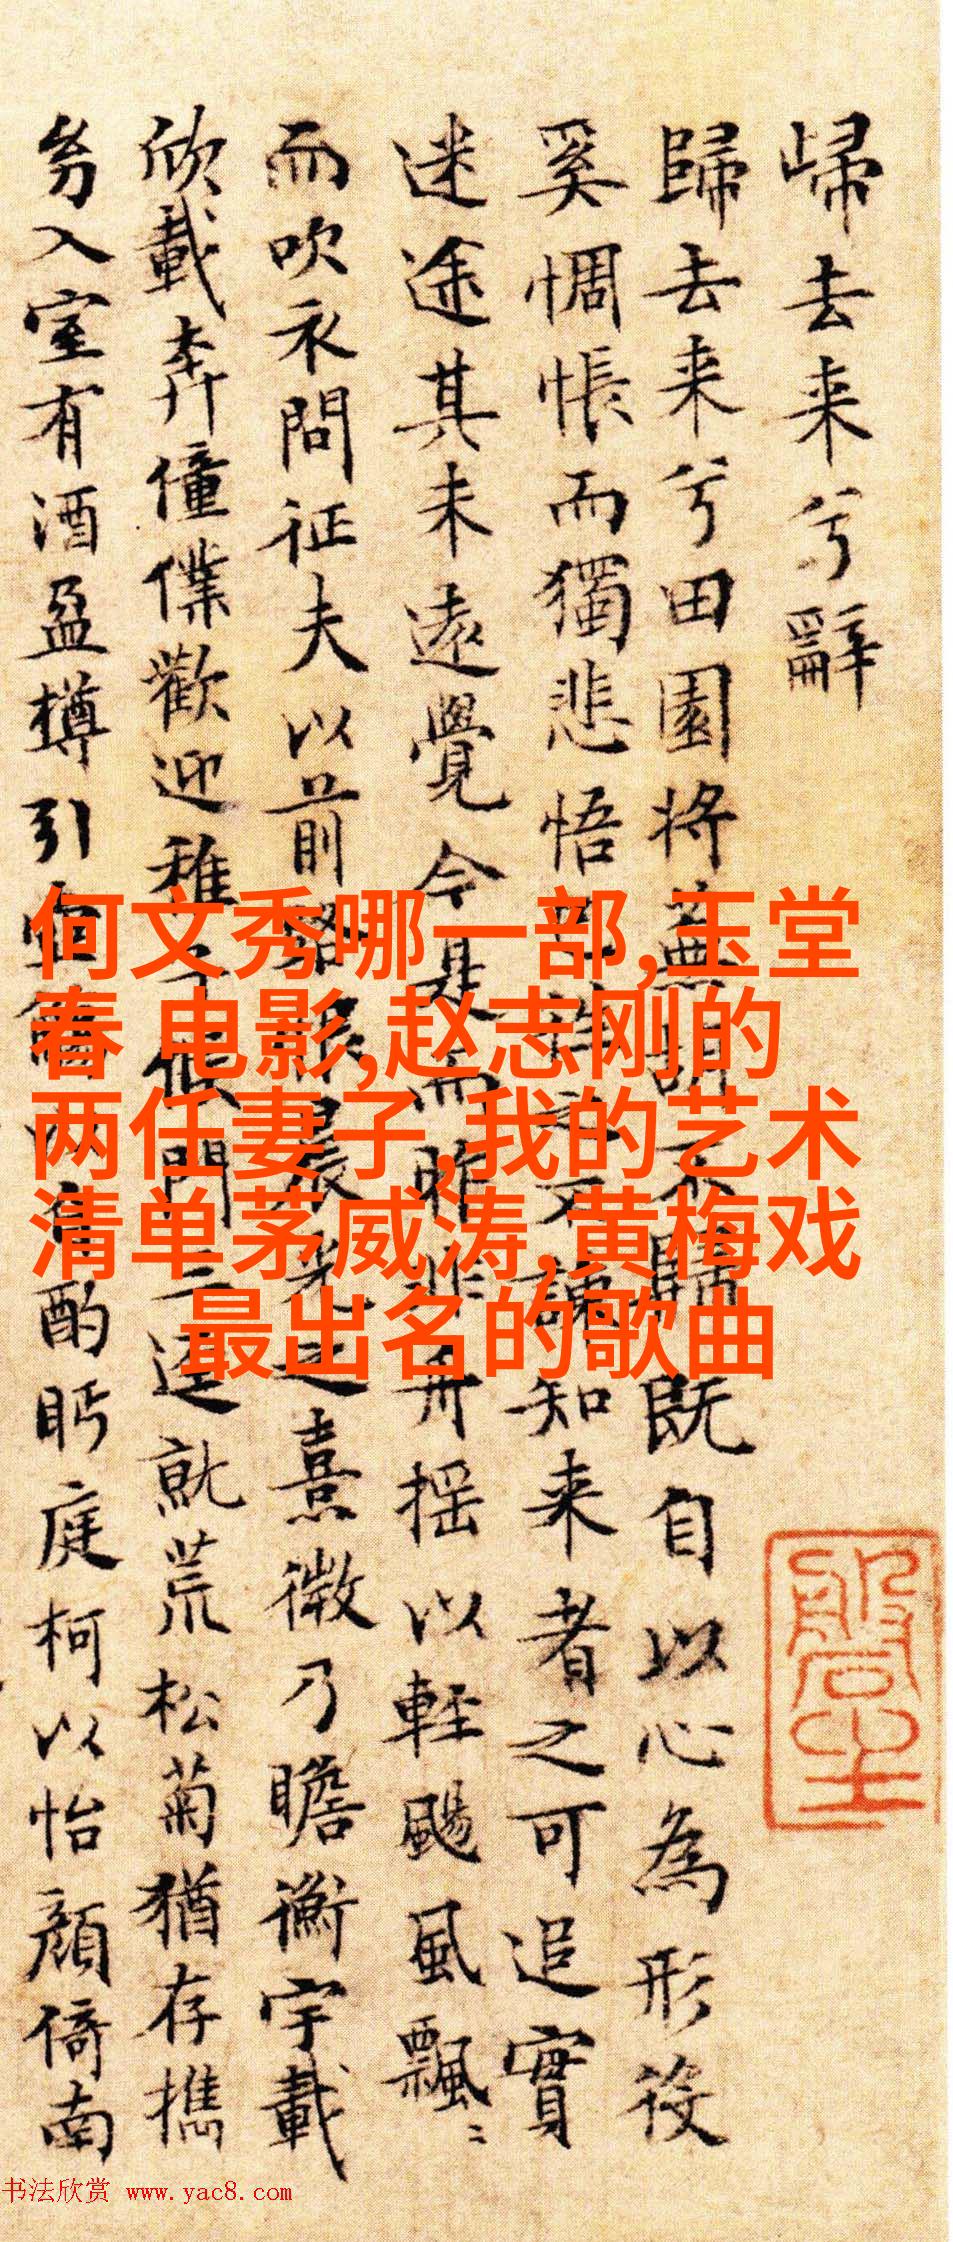 歸去来兮辭
歸去来兮田園将蕪胡不歸既自以心為形役
奚惆悵而獨悲悟已往之不諫知来者之可追實
迷途其未遠覺今是而昨非舟揺以輕颺風飄〻
而吹衣問征夫以前路恨晨光之熹微乃瞻衡宇載
欣載奔僮僕歡迎稚子候門三逕就荒松菊猶存携
幼入室有酒盈樽引壺觴以自酌眄庭柯以怡顔倚南
何文秀哪一部,玉堂
春 电影,赵志刚的
两任妻子,我的艺术
清单茅威涛,黄梅戏
最出名的歌曲
书法欣赏 www.yac8.com